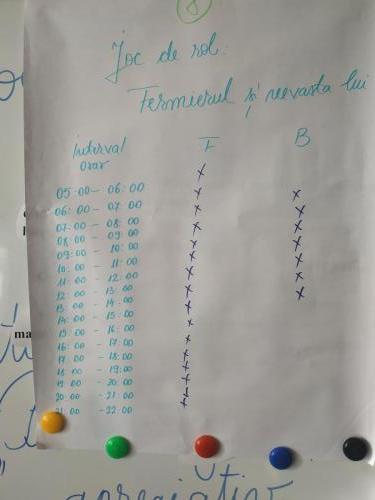 8
Joc de rol:
Fermierul și nevasta lui
Interval orar F B
05:00 - 06:00
06:00 - 07:00
07:00 - 08:00
08:00 - 09:00
09:00 - 10:00
10:00 - 11:00
11:00 - 12:00
12:00 - 13:00
13:00 - 14:00
14:00 - 15:00
15:00 - 16:00
16:00 - 17:00
17:00 - 18:00
18:00 - 19:00
19:00 - 20:00
20:00 - 21:00
21:00 - 22:00
apreciativ